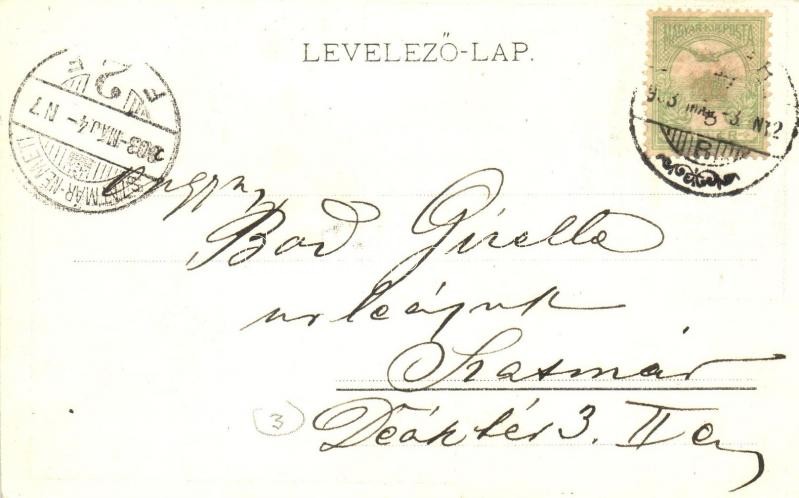 LEVELEZŐ-LAP.
MAGYAR KIR. POSTA
903 MÁJ -3 N12
B
SZATMÁR-NÉMETI
903-MÁJ 4-N7
F 2 F
Bod Gizella
urleánynak
Szatmár
Deáktér 3. II em
3